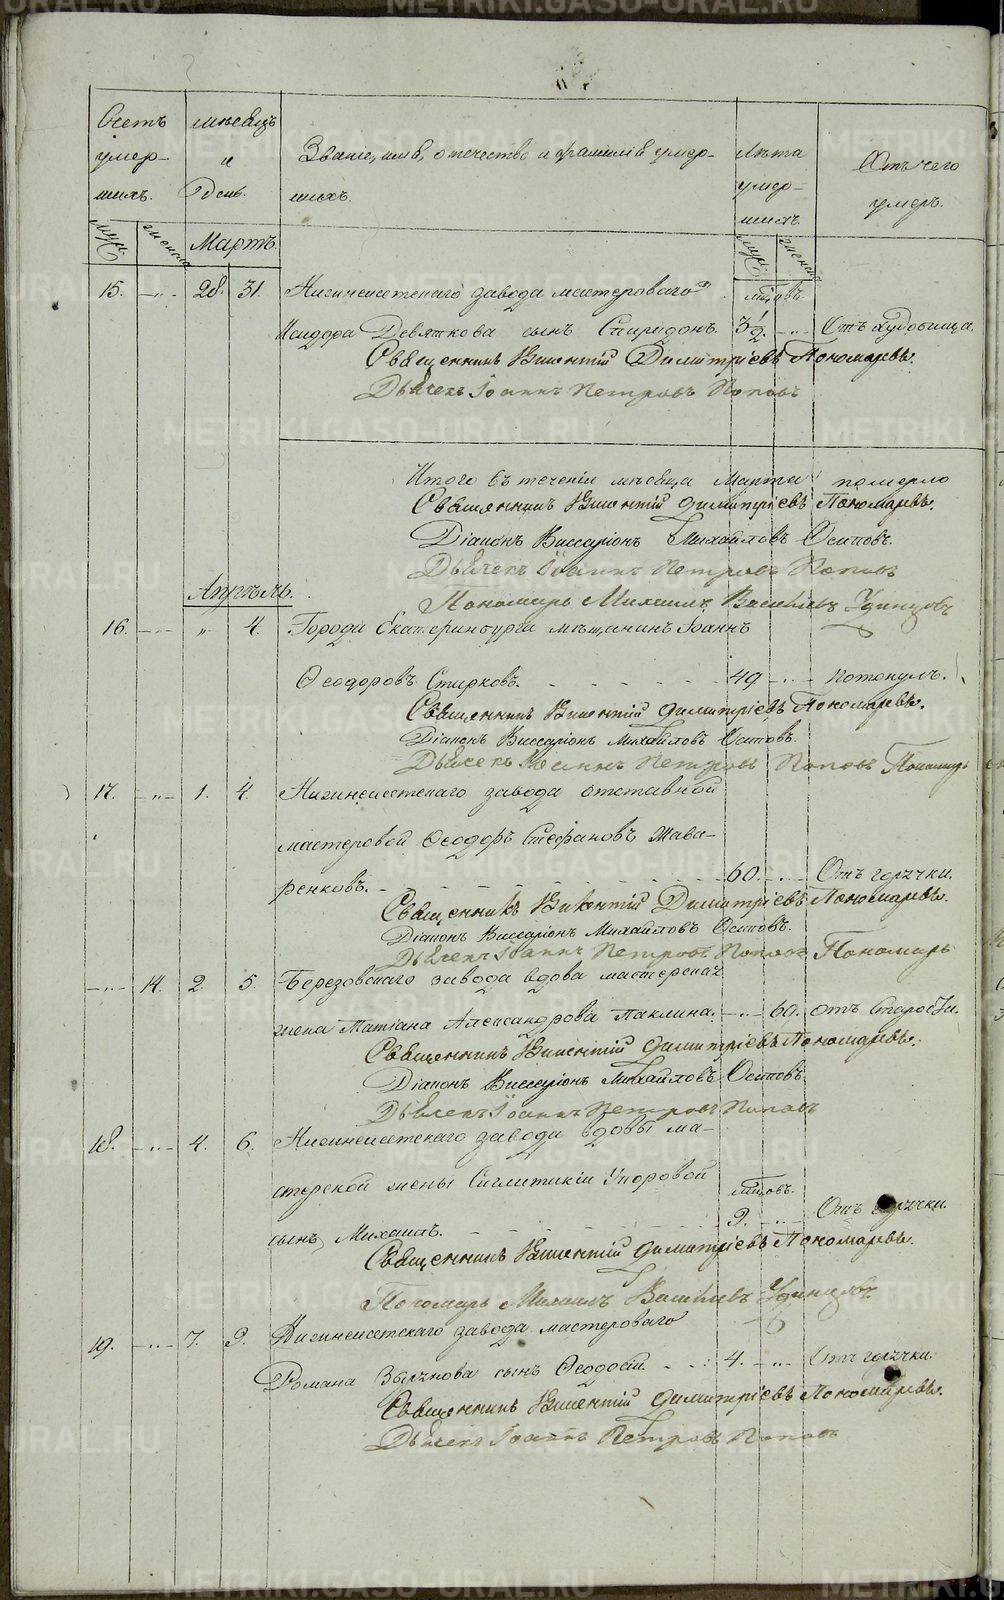 Счетъ умер-
шихъ.
мѣсяцъ
и
день.
Званіе, имя, отечество и фамилія умер-
шихъ.
Лѣта
умер-
шихъ
Отъ чего
умеръ.
муж.
женска
Мартъ
муж.
женск.
15. -„- 28. 31. Нижнеисетскаго завода мастероваго мѣсяцовъ
Исидора Девяткова сынъ Спиридонъ. 3 1/2. -„- Отъ худобища.
Священникъ Викентій Димитріевъ Пономаревъ.
Дьячекъ Іоаннъ Петровъ Поповъ
Итого въ теченіи мѣсяца Марта померло
Священникъ Викентій Димитріевъ Пономаревъ.
Діаконъ Виссаріонъ Михайловъ Осиповъ.
Дьячекъ Іоаннъ Петровъ Поповъ
Пономарь Михаилъ Васильевъ Удинцовъ
Апрѣль.
16. -„- „ 4. Города Екатеринбурга мѣщанинъ Іоаннъ
Ѳеодоровъ Стирковъ. 49 -„- потонулъ.
Священникъ Викентій Димитріевъ Пономаревъ.
Діаконъ Виссаріонъ Михайловъ Осиповъ.
Дьячекъ Іоаннъ Петровъ Поповъ Пономарь
17. -„- 1. 4. Нижнеисетскаго завода отставной
мастеровой Ѳеодоръ Стефановъ Жава-
ренковъ. 60. -„- Отъ горячки.
Священникъ Викентій Димитріевъ Пономаревъ.
Діаконъ Виссаріонъ Михайловъ Осиповъ.
Дьячекъ Іоаннъ Петровъ Поповъ Пономарь
-„- 14. 2. 5. Березовскаго завода вдова мастерская
жена Матіана Александрова Паклина. -„- 60. отъ старости.
Священникъ Викентій Димитріевъ Пономаревъ.
Діаконъ Виссаріонъ Михайловъ Осиповъ.
Дьячекъ Іоаннъ Петровъ Поповъ
18. -„- 4. 6. Нижнеисетскаго завода вдовы ма-
стерской жены Сиглитикіи Упоровой мѣсяцовъ.
сынъ Михаилъ. 9. -„- Отъ горячки.
Священникъ Викентій Димитріевъ Пономаревъ.
Пономарь Михаилъ Васильевъ Удинцовъ
19. -„- 7. 9. Нижнеисетскаго завода мастероваго
Романа Зырянова сынъ Ѳеодосій. 4. -„- Отъ горячки.
Священникъ Викентій Димитріевъ Пономаревъ.
Дьячекъ Іоаннъ Петровъ Поповъ
METRIKI.GASO-URAL.RU